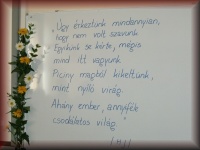 „Úgy érkeztünk mindannyian,
hogy nem volt szavunk
Egyikünk se kérte, mégis
mind itt vagyunk
Piciny magból kikeltünk,
mint nyíló virág
Ahány ember, annyiféle
csodálatos világ"